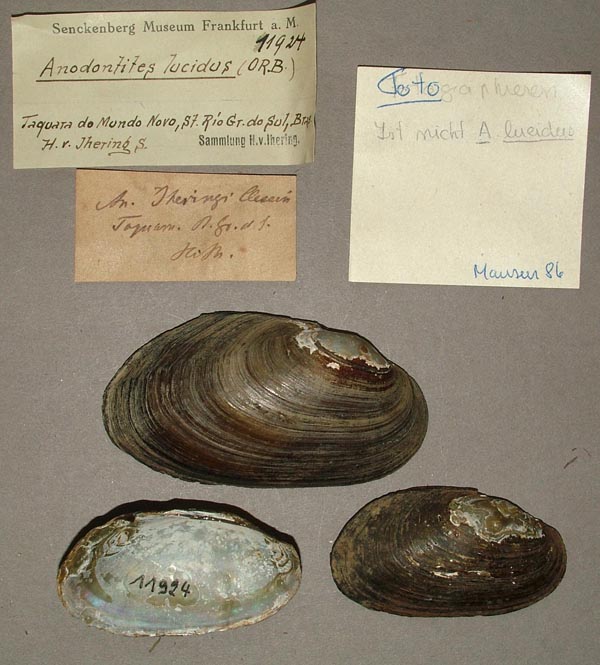 Senckenberg Museum Frankfurt a. M.
11924
Anodontites lucidus (ORB.)
Taquara do Mundo Novo, St. Rio Gr. do Sul, Bras
H. v. Jhering S.
Sammlung H.v.Ihering.
An. Jheringi Clessin
Taquara. R. Gr. d. S.
Foto
graphieren
Ist nicht A. lucidus
Mansur 86
11924